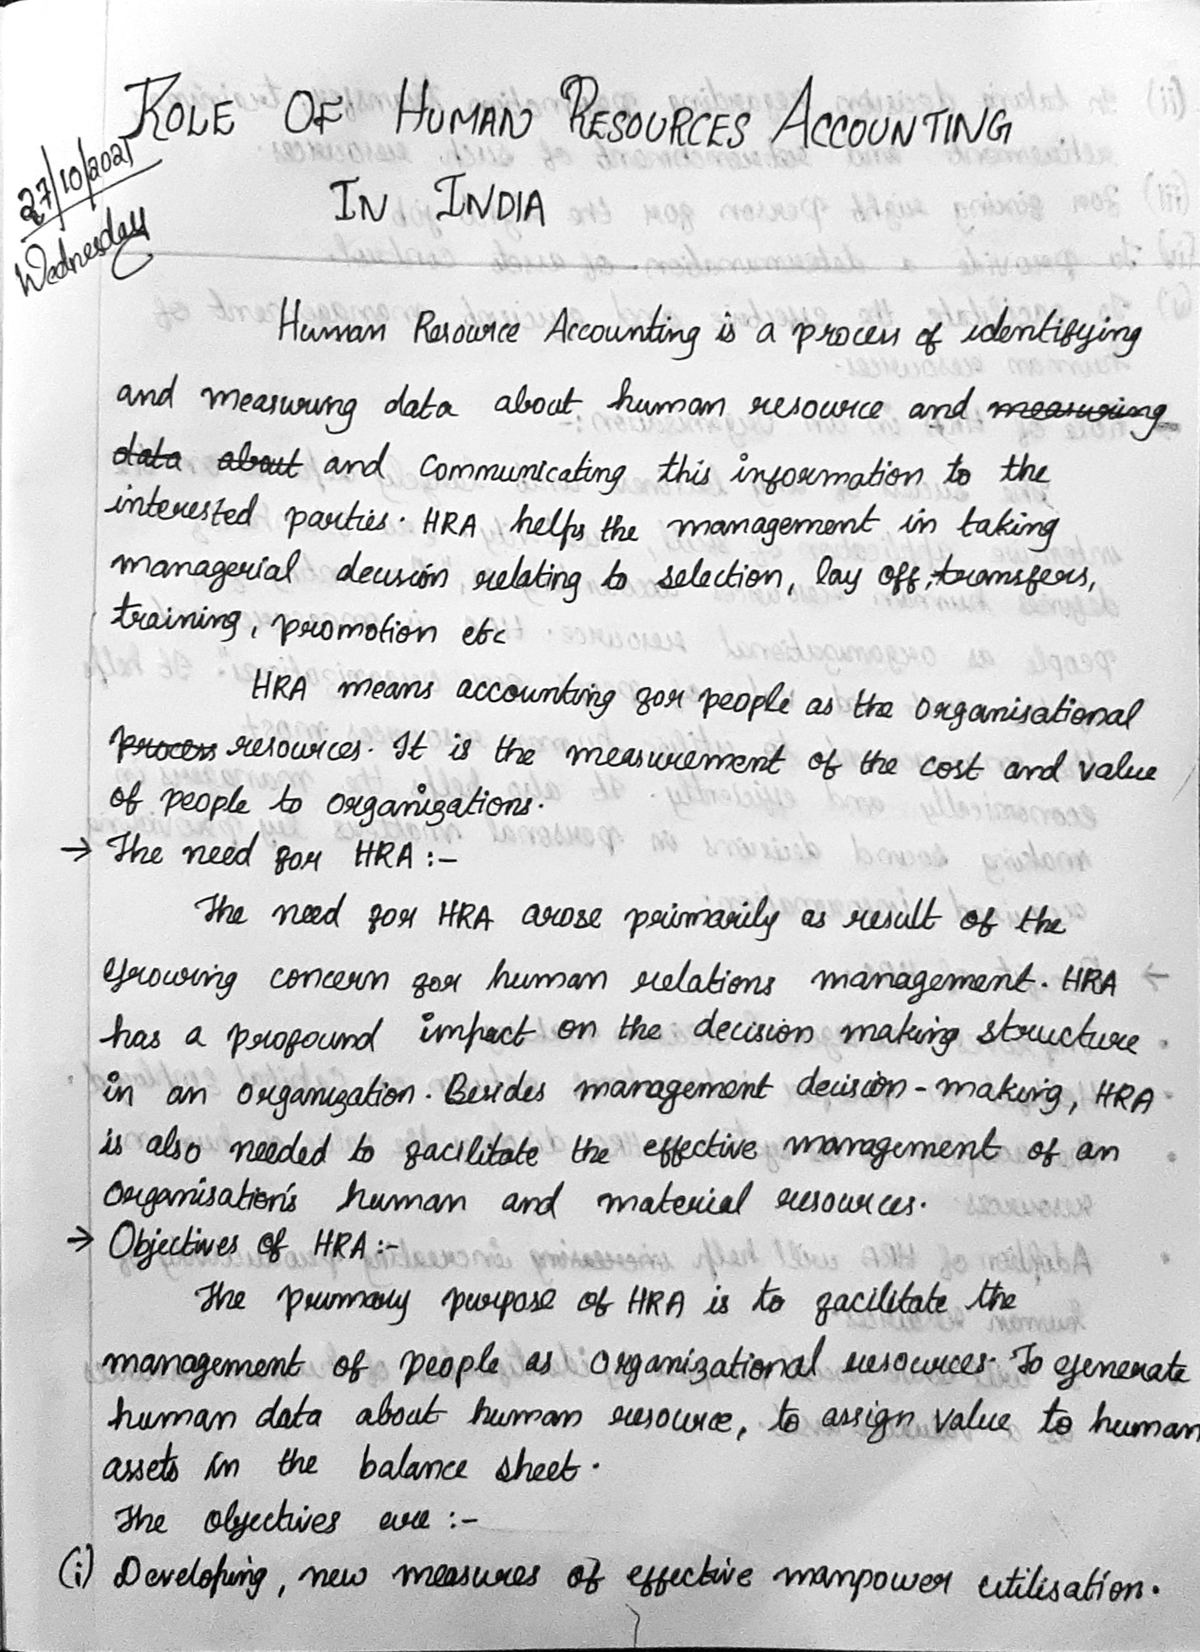 ROLE OF HUMAN RESOURCES ACCOUNTING
IN INDIA
27/10/2021
Wednesday
Human Resource Accounting is a process of identifying
and measuring data about human resource and measuring
data about and communicating this information to the
interested parties. HRA helps the management in taking
managerial decision relating to selection, lay off, transfers,
training, promotion etc
HRA means accounting for people as the organisational
process resources. It is the measurement of the cost and value
of people to organizations.
→ The need for HRA :-
The need for HRA arose primarily as result of the
growing concern for human relations management. HRA
has a profound impact on the decision making structure
in an organization. Besides management decision-making, HRA
is also needed to facilitate the effective management of an
organisation's human and material resources.
→ Objectives of HRA:-
The primary purpose of HRA is to facilitate the
management of people as organizational resources. To generate
human data about human resource, to assign value to human
assets in the balance sheet.
The objectives are :-
(i) Developing, new measures of effective manpower utilisation.